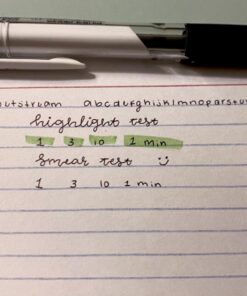 outstream abcdefghijklmnopqrstu
highlight test
1 3 10 1 min
smear test :)
1 3 10 1 min